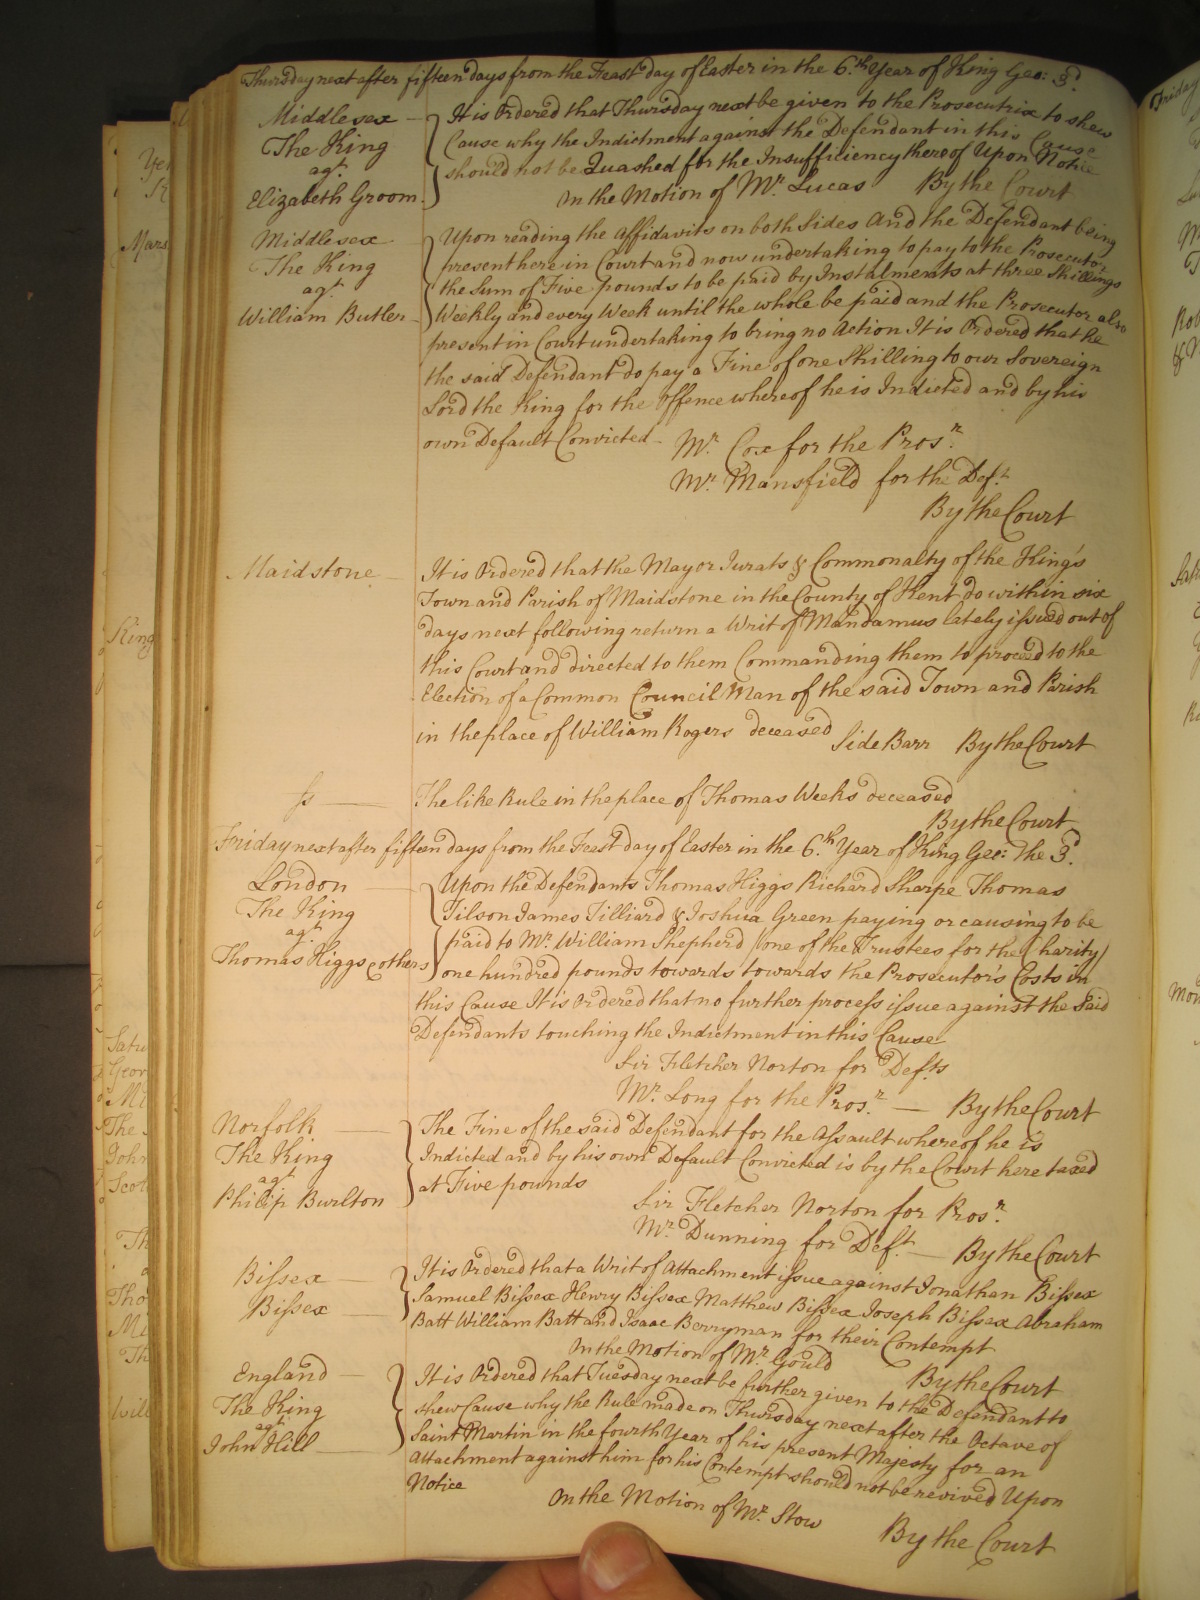 Thursday next after fifteen days from the Feast day of Easter in the 6.th Year of King Geo: 3.d
Middlesex
The King
agt
Elizabeth Groom
It is Ordered that Thursday next be given to the Prosecutrix to shew
Cause why the Indictment against the Defendant in this Cause
should not be Quashed for the Insufficiency thereof Upon Notice
On the Motion of Mr. Lucas By the Court
Middlesex
The King
agt
William Butler
Upon reading the Affidavits on both Sides And the Defendant being
present here in Court and now undertaking to pay to the Prosecutor
the Sum of Five pounds to be paid by Instalments at three Shillings
Weekly and every Week until the whole be paid and the Prosecutor also
present in Court undertaking to bring no Action It is Ordered that he
the said Defendant do pay a Fine of one Shilling to our Sovereign
Lord the King for the Offence whereof he is Indicted and by his
own Default Convicted Mr. Cox for the Pros.r
Mr. Mansfield for the Def.t
By the Court
Maidstone
It is Ordered that the Mayor Jurats & Commonalty of the King's
Town and Parish of Maidstone in the County of Kent do within six
days next following return a Writ of Mandamus lately issued out of
this Court and directed to them Commanding them to proceed to the
Election of a Common Council Man of the said Town and Parish
in the place of William Rogers deceased Side Barr By the Court
ss The like Rule in the place of Thomas Weeks deceased
By the Court
Friday next after fifteen days from the Feast day of Easter in the 6.th Year of King Geo: The 3.d
London
The King
agt
Thomas Higgs & others
Upon the Defendants Thomas Higgs Richard Sharpe Thomas
Tilson James Tilliard & Joshua Green paying or causing to be
paid to Mr. William Shepherd (one of the Trustees for the Charity)
one hundred pounds towards towards the Prosecutor's Costs in
this Cause It is Ordered that no further process issue against the said
Defendants touching the Indictment in this Cause
Sir Fletcher Norton for Def.ts
Mr. Long for the Pros.r By the Court
Norfolk
The King
agt
Philip Burlton
The Fine of the said Defendant for the Assault whereof he is
Indicted and by his own Default Convicted is by the Court here taxed
at Five pounds
Sir Fletcher Norton for Pros.r
Mr. Dunning for Def.t By the Court
Bissex
Bissex
It is Ordered that a Writ of Attachment issue against Jonathan Bissex
Samuel Bissex Henry Bissex Matthew Bissex Joseph Bissex Abraham
Batt William Batt and Isaac Berryman for their Contempt
On the Motion of Mr. Gould By the Court
England
The King
agt
John Hill
It is Ordered that Tuesday next be further given to the Defendant to
shew Cause why the Rule made on Thursday next after the Octave of
Saint Martin in the fourth Year of his present Majesty for an
Attachment against him for his Contempt should not be revived Upon
Notice On the Motion of Mr. Stow
By the Court